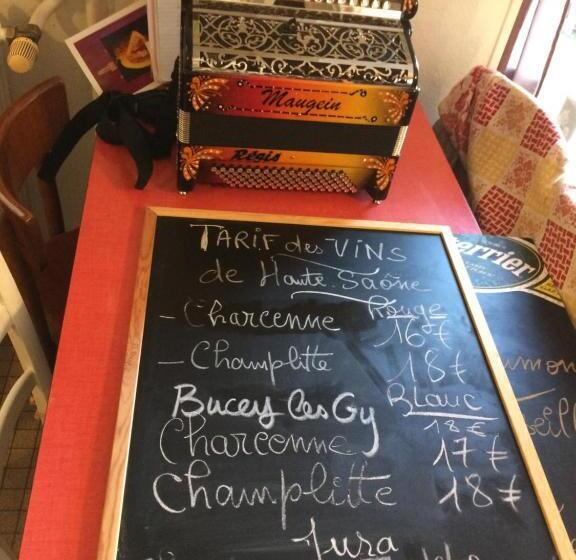 Maugein
Régis
TARIF des VINS
de Haute-Saône
Rouge
- Charcenne 16€
- Champlitte 18€
Blanc
Bucey les Gy 18€
Charcenne 17€
Champlitte 18€
Jura
Perrier